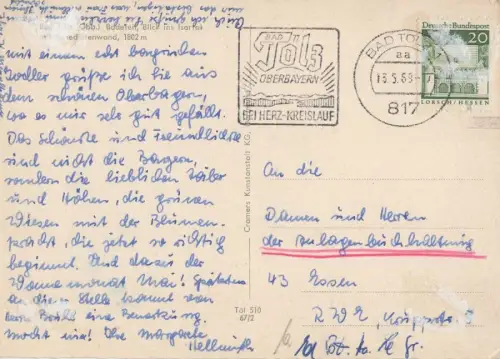 (Obb.) Bauerten, Blick ins Isartal
enwand, 1802 m
mit einem echt bayrischen
grüße ich Sie aus
dem schönen Oberbayern,
wo es mir sehr gut gefällt.
Das Schönste und Freundlichste
sind nicht die Bayern,
sondern die lieblichen Täler
und Höhen, die grünen
Wiesen mit der Blumen-
pracht, die jetzt so richtig
beginnt. Und dazu der
Wonnemonat Mai! Spätestens
an dieser Stelle kommt von
eine Bemerkung.
macht nix! Ihre Margarete
Hellmuth
Cramers Kunstanstalt KG,
Töl 510
67/2
BAD
Tölz
OBERBAYERN
BEI HERZ-KREISLAUF
BAD TÖL
aa
.5.69-
817
Deutsche Bundespost
20
LORSCH/HESSEN
An die
Damen und Herren
der Anlagenbuchhaltung
43 Essen
RWE, Kruppstr. 5